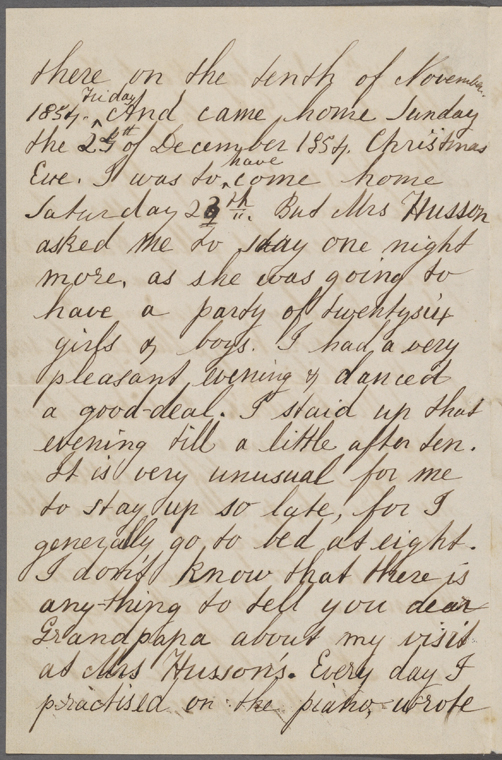 there on the tenth of November
Friday
1854. And came home Sunday
the 25th of December 1854. Christmas
have
Eve. I was to come home
Saturday 23th. But Mrs Husson
asked me to stay one night
more, as she was going to
have a party of twentysix
girls & boys. I had a very
pleasant evening & danced
a good-deal. I staid up that
evening till a little after ten.
It is very unusual for me
to stay up so late, for I
generally go to bed at eight.
I don't know that there is
any-thing to tell you dear
Grandpapa about my visit
at Mrs Husson's. Every day I
practised on the piano, wrote